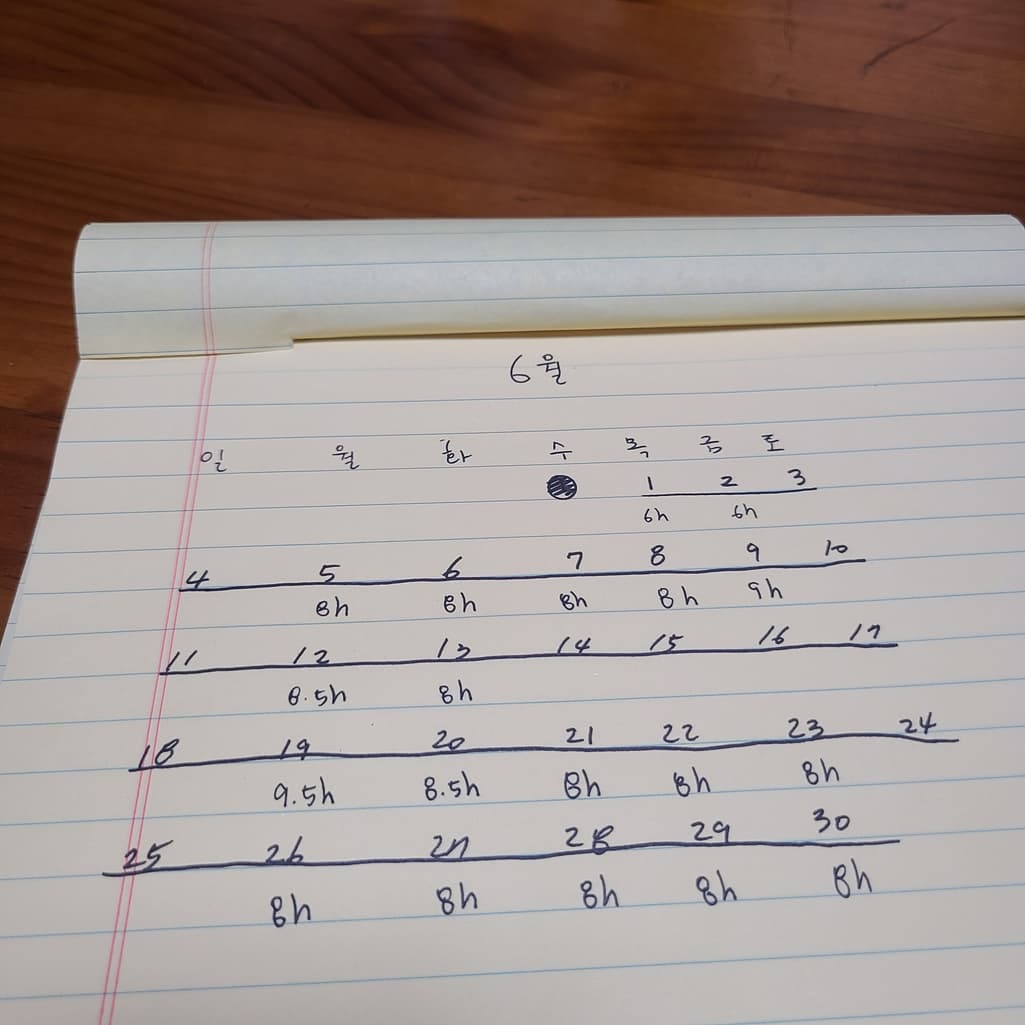 6월
일 월 화 수 목 금 토
1 2 3
6h 6h
4 5 6 7 8 9 10
8h 8h 8h 8h 9h
11 12 13 14 15 16 17
8.5h 8h
18 19 20 21 22 23 24
9.5h 8.5h 8h 8h 8h
25 26 27 28 29 30
8h 8h 8h 8h 8h